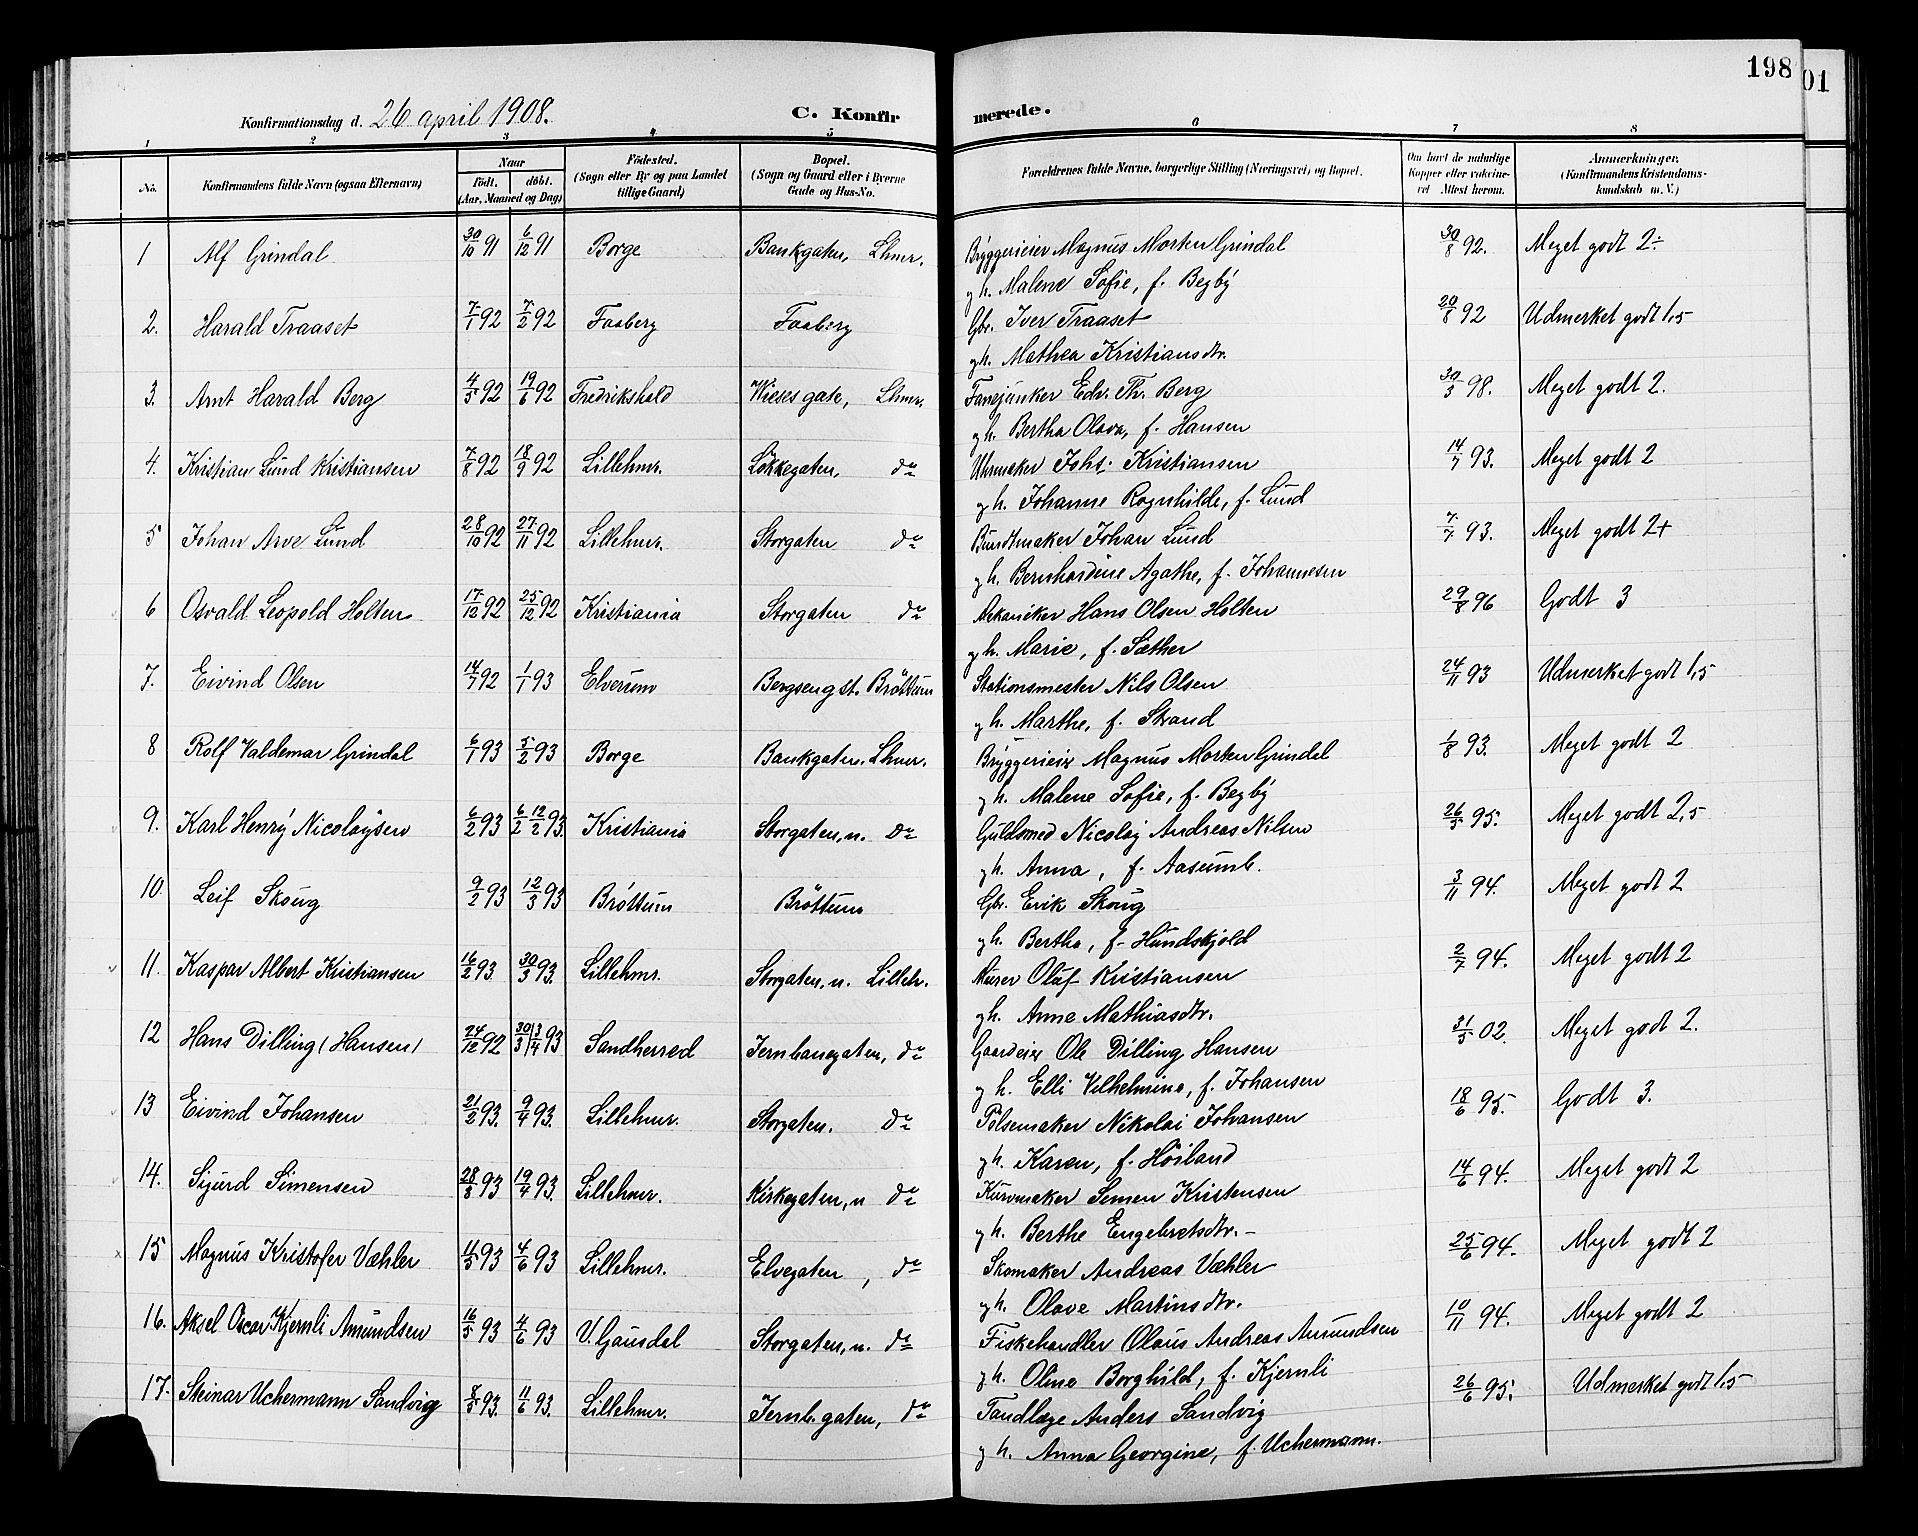 198
01
Konfirmationsdag d. 26 april 1908. C. Konfir merede.
1 2 3 4 5 6 7 8
No. Konfirmandens fulde Navn (ogsaa Efternavn) Naar født. døbt. (Aar, Maaned og Dag) Fødested. (Sogn eller By og paa Landet tillige Gaard) Bopæl. (Sogn og Gaard eller i Byerne Gade og Hus-No. Forældrenes fulde Navne, borgerlige Stilling (Næringsvei) og Bopæl. Om havt de naturlige Kopper eller vaccineret Attest herom. Anmerkninger. (Konfirmandens Kristendomskundskab m. V.)
1 Alf Grindal 30/10 91 6/12 91 Borge Bankgaten, Lhmr. Bryggerieier Magnus Morten Grindal 30/8 92. Meget godt 2÷
g h. Malene Sofie, f. Begby
2. Harald Traaset 7/1 92 7/2 92 Faaberg Faaberg Gbr. Iver Traaset 20/8 92 Udmerket godt 1,5
g h. Mathea Kristiansdtr.
3. Arnt Harald Berg 4/5 92 19/6 92 Fredrikshald Wiesesgate, Lhmr. Fanejunker Edv. Th. Berg 30/3 98. Meget godt 2.
g h. Bertha Olava, f. Hansen
4. Kristian Lund Kristiansen 7/8 92 18/9 92 Lillehmr. Løkkegaten, do Uhrmaker Johs. Kristiansen 14/7 93. Meget godt 2
g h. Johanne Ragnhilde, f. Lund
5 Johan Arve Lund 28/10 92 27/11 92 Lillehmr. Storgaten do Bundtmaker Johan Lund 7/7 93. Meget godt 2+
g h. Bernhardine Agathe, f. Johannesen
6 Osvald Leopold Holten 17/12 92 25/12 92 Kristiania Storgaten do Mekaniker Hans Olsen Holten 29/8 96 Godt 3
g h. Marie, f. Sæther
7. Eivind Olsen 14/7 92 1/1 93 Elverum Bergseng st. Brøttum Stationsmester Nils Olsen 24/11 93 Udmerket godt 1,5
g h. Marthe, f. Strand
8 Rolf Valdemar Grindal 6/1 93 5/2 93 Borge Bankgaten. Lhmr. Bryggerieier Magnus Morten Grindal 1/8 93. Meget godt 2
g h. Malene Sofie, f. Begby
9. Karl Henry Nicolaysen 6/2 93 6/2 12/2 93. Kristiania Storgaten, n. do Guldsmed Nicolay Andreas Nilsen 26/5 95. Meget godt 2,5
g h. Anna, f. Aasumb.
10 Leif Skoug 9/2 93 12/3 93 Brøttum Brøttum Gbr. Erik Skoug 3/11 94. Meget godt 2
g h. Bertha, f. Hundskjold
11. Kaspar Albert Kristiansen 16/2 93 30/3 93. Lillehmr. Storgaten, n. Lilleh. Murer Oluf Kristiansen 2/7 94. Meget godt 2
g h. Anne Mathiasdtr.
12 Hans Dilling (Hansen) 24/12 92 30/3 3/4 93 Sandherred Jernbanegaten, do Gaardeier Ole Dilling Hansen 31/5 02. Meget godt 2.
g h. Elli Vilhelmine, f. Johansen
13 Eivind Johansen 21/2 93. 9/4 93. Lillehmr. Storgaten. do Pølsemaker Nikolai Johansen 18/6 95. Godt 3.
g h. Karen, f. Høiland
14. Sigurd Simensen 28/3 93 19/4 93. Lillehmr. Kirkegaten, n do Kurvmaker Semen Kristensen 14/6 94. Meget godt 2
g h. Berthe Engebretsdtr.
15 Magnus Kristofer Væhler 11/5 93 4/6 93 Lillehmr. Elvegaten, do Skomaker Andreas Væhler 25/6 94. Meget godt 2
g h. Olave Martinsdtr.
16. Aksel Oscar Kjernli Amundsen 16/5 93 4/6 93 V. Gausdal Storgaten, n. do Fiskehandler Olaus Andreas Amundsen 10/11 94. Meget godt 2
g h. Oline Borghild, f. Kjernli
17. Steinar Uchermann Sandvig 8/5 93. 11/6 93. Lillehmr. Jernb.gaten, do Tandlæge Anders Sandvig 26/6 95. Udmerket godt 1.5
g h. Anna Georgine, f. Uchermann.